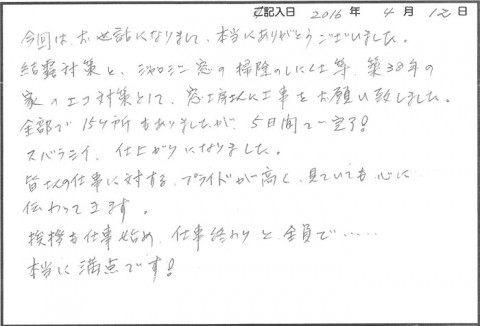 ご記入日 2016 年 4 月 12 日
今回は、お世話になりまして、本当にありがとうございました。
結露対策と、ジャロジー窓の掃除のしにくさ等、築38年の
家のエコ対策として、窓工房さんに工事をお願い致しました。
全部で15ヶ所もありましたが、5日間で完了!
スバラシイ、仕上がりになりました。
皆さんの仕事に対する、プライドが高く、見ていても心に
伝わってきます。
挨拶も仕事始め、仕事終わりと全員で……
本当に満点です!